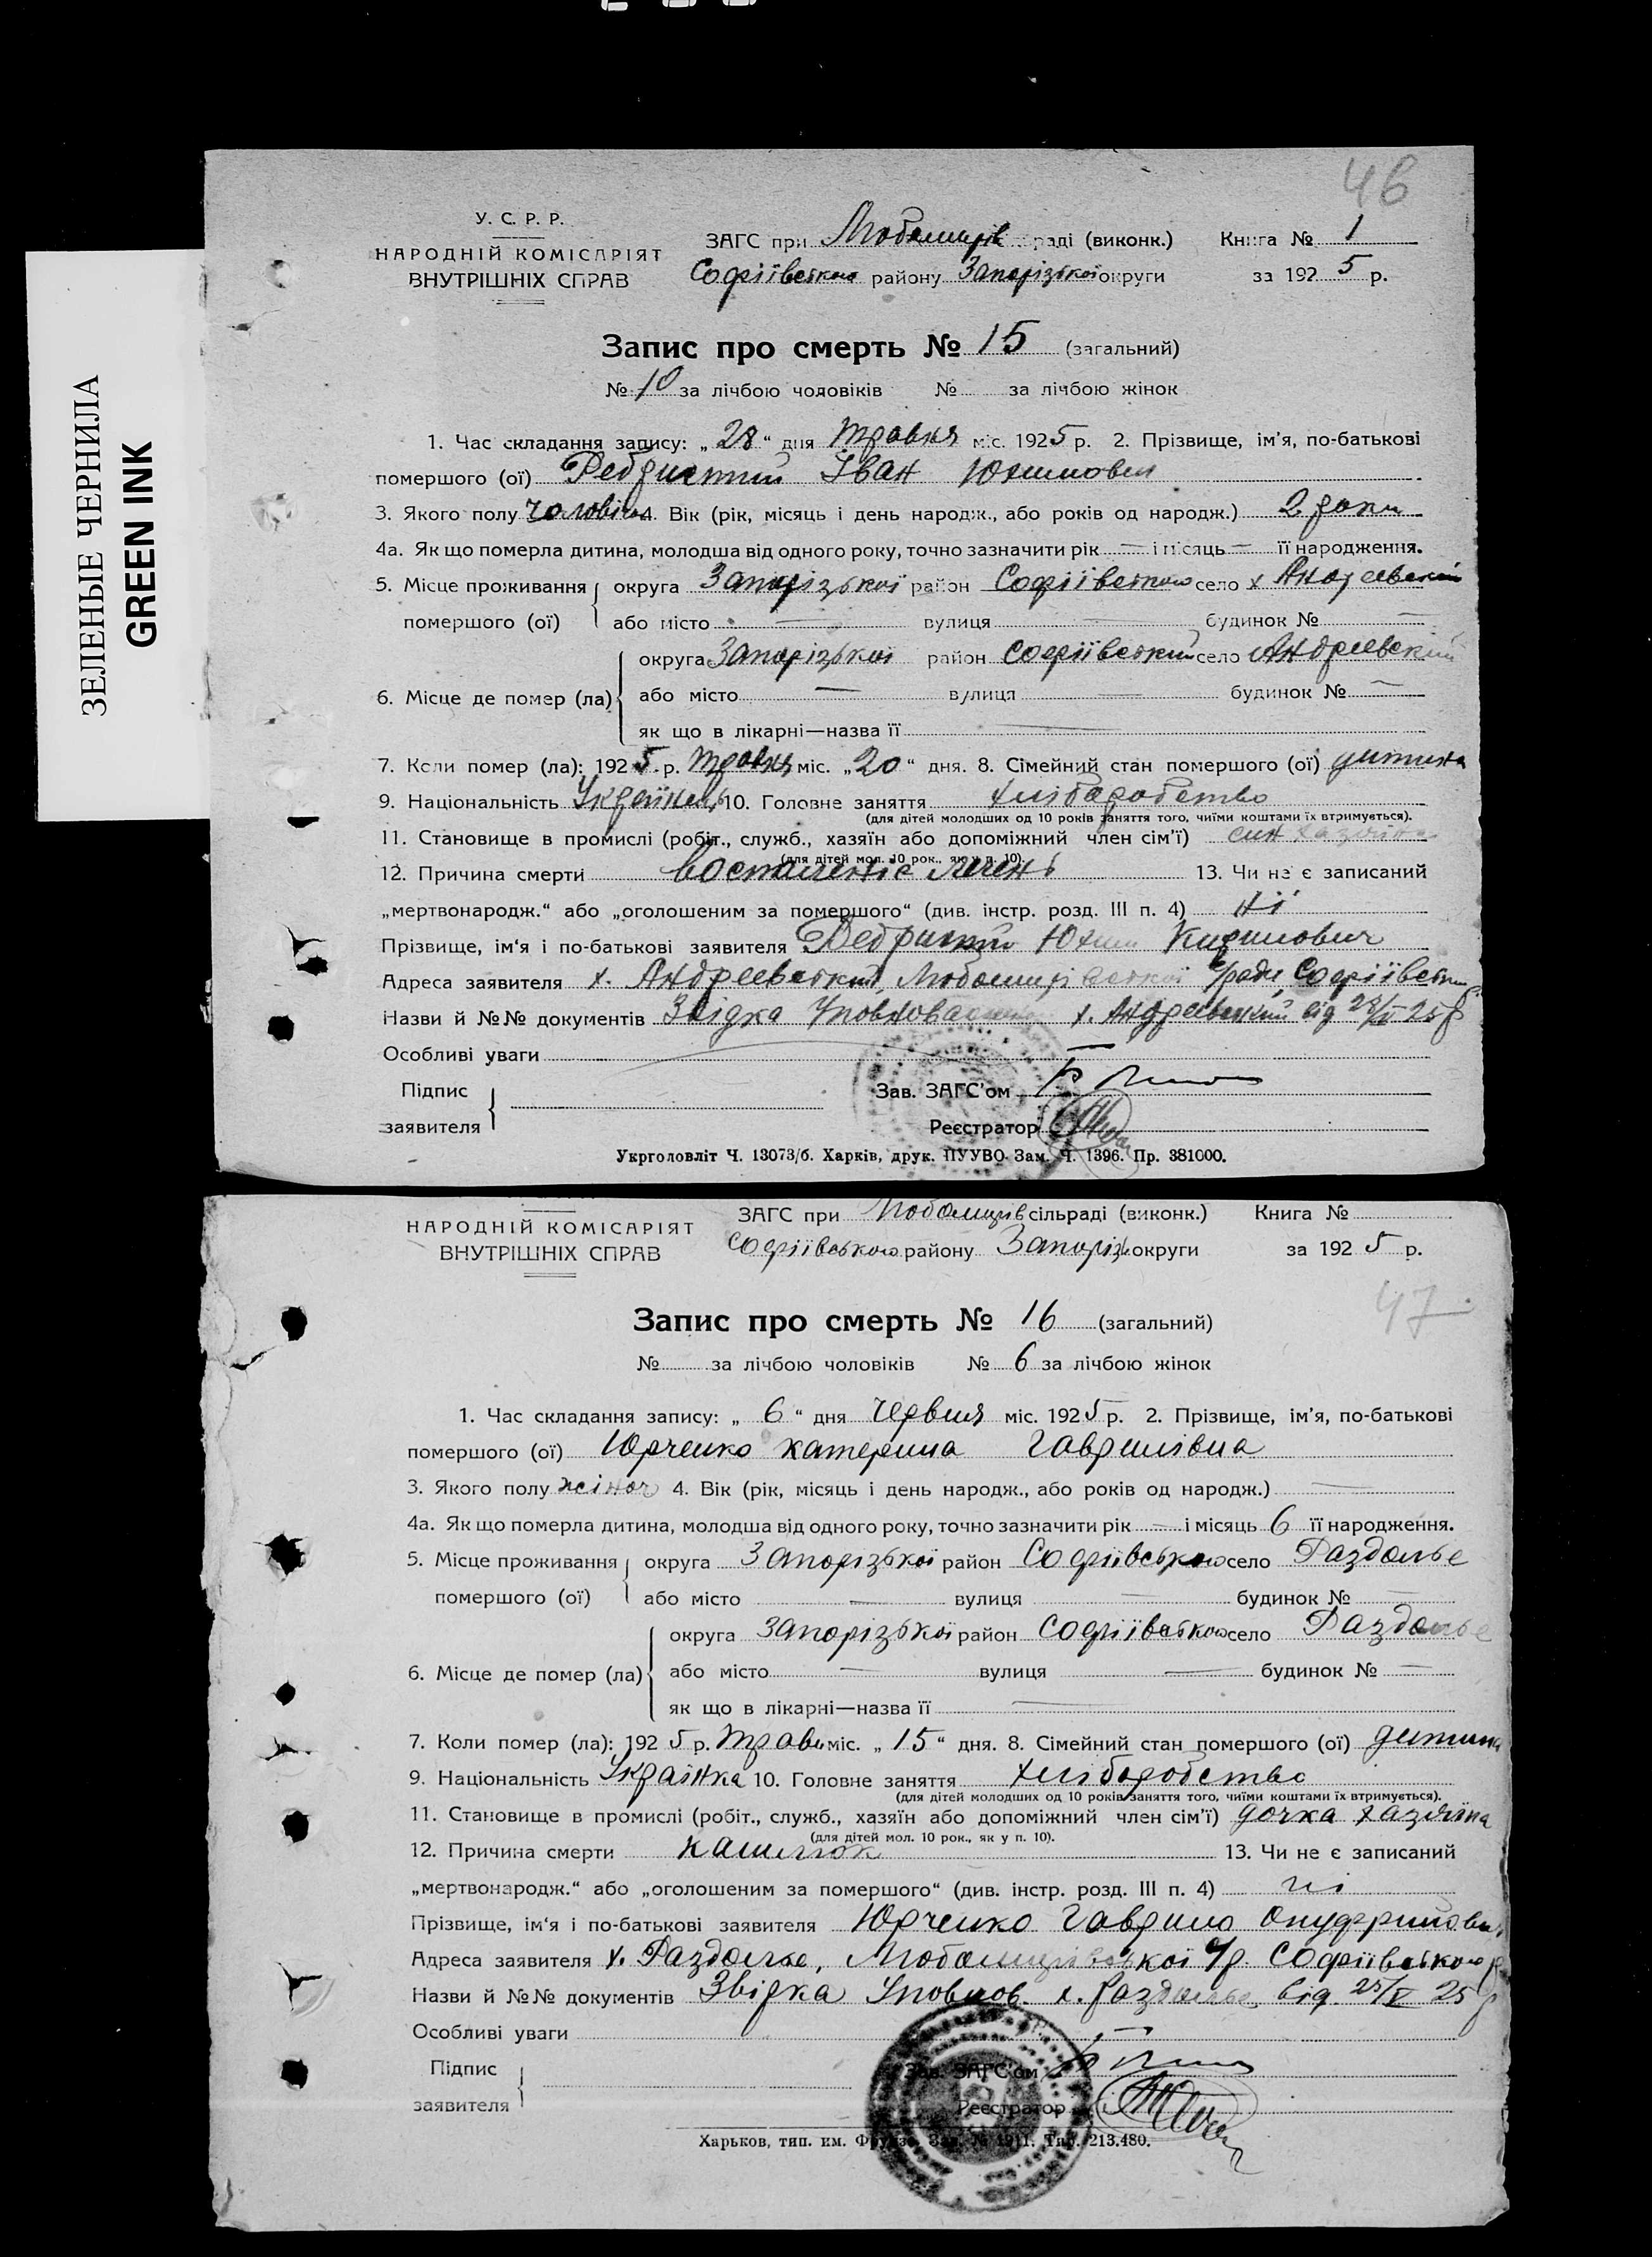 ЗЕЛЕНЫЕ ЧЕРНИЛА
GREEN INK
46
У. С. Р. Р.
НАРОДНІЙ КОМІСАРІЯТ
ВНУТРІШНІХ СПРАВ
ЗАГС при Любомирів раді (виконк.) Книга № 1
Софіївського району Запорізької округи за 1925 р.
Запис про смерть № 15 (загальний)
№ 10 за лічбою чоловіків № за лічбою жінок
1. Час складання запису: „28“ дня травня міс. 1925 р. 2. Прізвище, ім’я, по-батькові
помершого (ої) Ребристий Іван Юхимович
3. Якого полу чоловіч 4. Вік (рік, місяць і день народж., або років од народж.) 2 роки
4а. Як що померла дитина, молодша від одного року, точно зазначити рік — і місяць — її народження.
5. Місце проживання округа Запорізької район Софіївського село х Андреевский
помершого (ої) або місто — вулиця — будинок № —
округа Запорізької район Софіївський село Андреевский
6. Місце де помер (ла) або місто — вулиця — будинок № —
як що в лікарні—назва її —
7. Коли помер (ла): 1925 р. травня міс. „20“ дня. 8. Сімейний стан помершого (ої) дитина
9. Національність Українець 10. Головне заняття хліборобство
(для дітей молодших од 10 років заняття того, чиїми коштами їх втримується).
11. Становище в промислі (робіт., служб., хазяїн або допоміжний член сім’ї) син хазяїна
(для дітей мол. 10 рок., як у п. 10).
12. Причина смерти 13. Чи не є записаний
„мертвонародж.“ або „оголошеним за помершого“ (див. інстр. розд. III п. 4) ні
Прізвище, ім‘я і по-батькові заявителя Ребристий Юхим Кирилович
Адреса заявителя х. Андреевский, Любомирівської с/ради, Софіївськ
Назви й №№ документів Звідка х. Андреевский від 28/V 25 р
Особливі уваги
Підпис
заявителя
Зав. ЗАГС’ом
Реєстратор
Укрголовліт Ч. 13073/б. Харків, друк. ПУУВО. Зам. Ч. 1396. Пр. 381000.
НАРОДНІЙ КОМІСАРІЯТ
ВНУТРІШНІХ СПРАВ
ЗАГС при Любомирів сільраді (виконк.) Книга №
Софіївського району Запоріз округи за 1925 р.
47
Запис про смерть № 16 (загальний)
№ за лічбою чоловіків № 6 за лічбою жінок
1. Час складання запису: „6“ дня червня міс. 1925 р. 2. Прізвище, ім’я, по-батькові
помершого (ої) Юрченко Катерина Гаврилівна
3. Якого полу жіноч 4. Вік (рік, місяць і день народж., або років од народж.) —
4а. Як що померла дитина, молодша від одного року, точно зазначити рік — і місяць 6 її народження.
5. Місце проживання округа Запорізької район Софіївського село Раздолье
помершого (ої) або місто — вулиця — будинок № —
округа Запорізької район Софіївського село Раздолье
6. Місце де помер (ла) або місто — вулиця — будинок № —
як що в лікарні—назва її —
7. Коли помер (ла): 1925 р. Травн міс. „15“ дня. 8. Сімейний стан помершого (ої) дитина
9. Національність Українка 10. Головне заняття хліборобство
(для дітей молодших од 10 років заняття того, чиїми коштами їх втримується).
11. Становище в промислі (робіт., служб., хазяїн або допоміжний член сім’ї) дочка хазяїна
(для дітей мол. 10 рок., як у п. 10).
12. Причина смерти кашлюк 13. Чи не є записаний
„мертвонародж.“ або „оголошеним за помершого“ (див. інстр. розд. III п. 4) ні
Прізвище, ім‘я і по-батькові заявителя Юрченко Гаврило
Адреса заявителя х. Раздолье, Любомирівської с/р. Софіївського р
Назви й №№ документів Звідка Уповнов. х. Раздолье від 25/V 25 р
Особливі уваги
Підпис
заявителя
Зав. ЗАГС’ом
Реєстратор
Харьков, тип. им. Фрунзе. Зак. № 1911. Тир. 213.480.